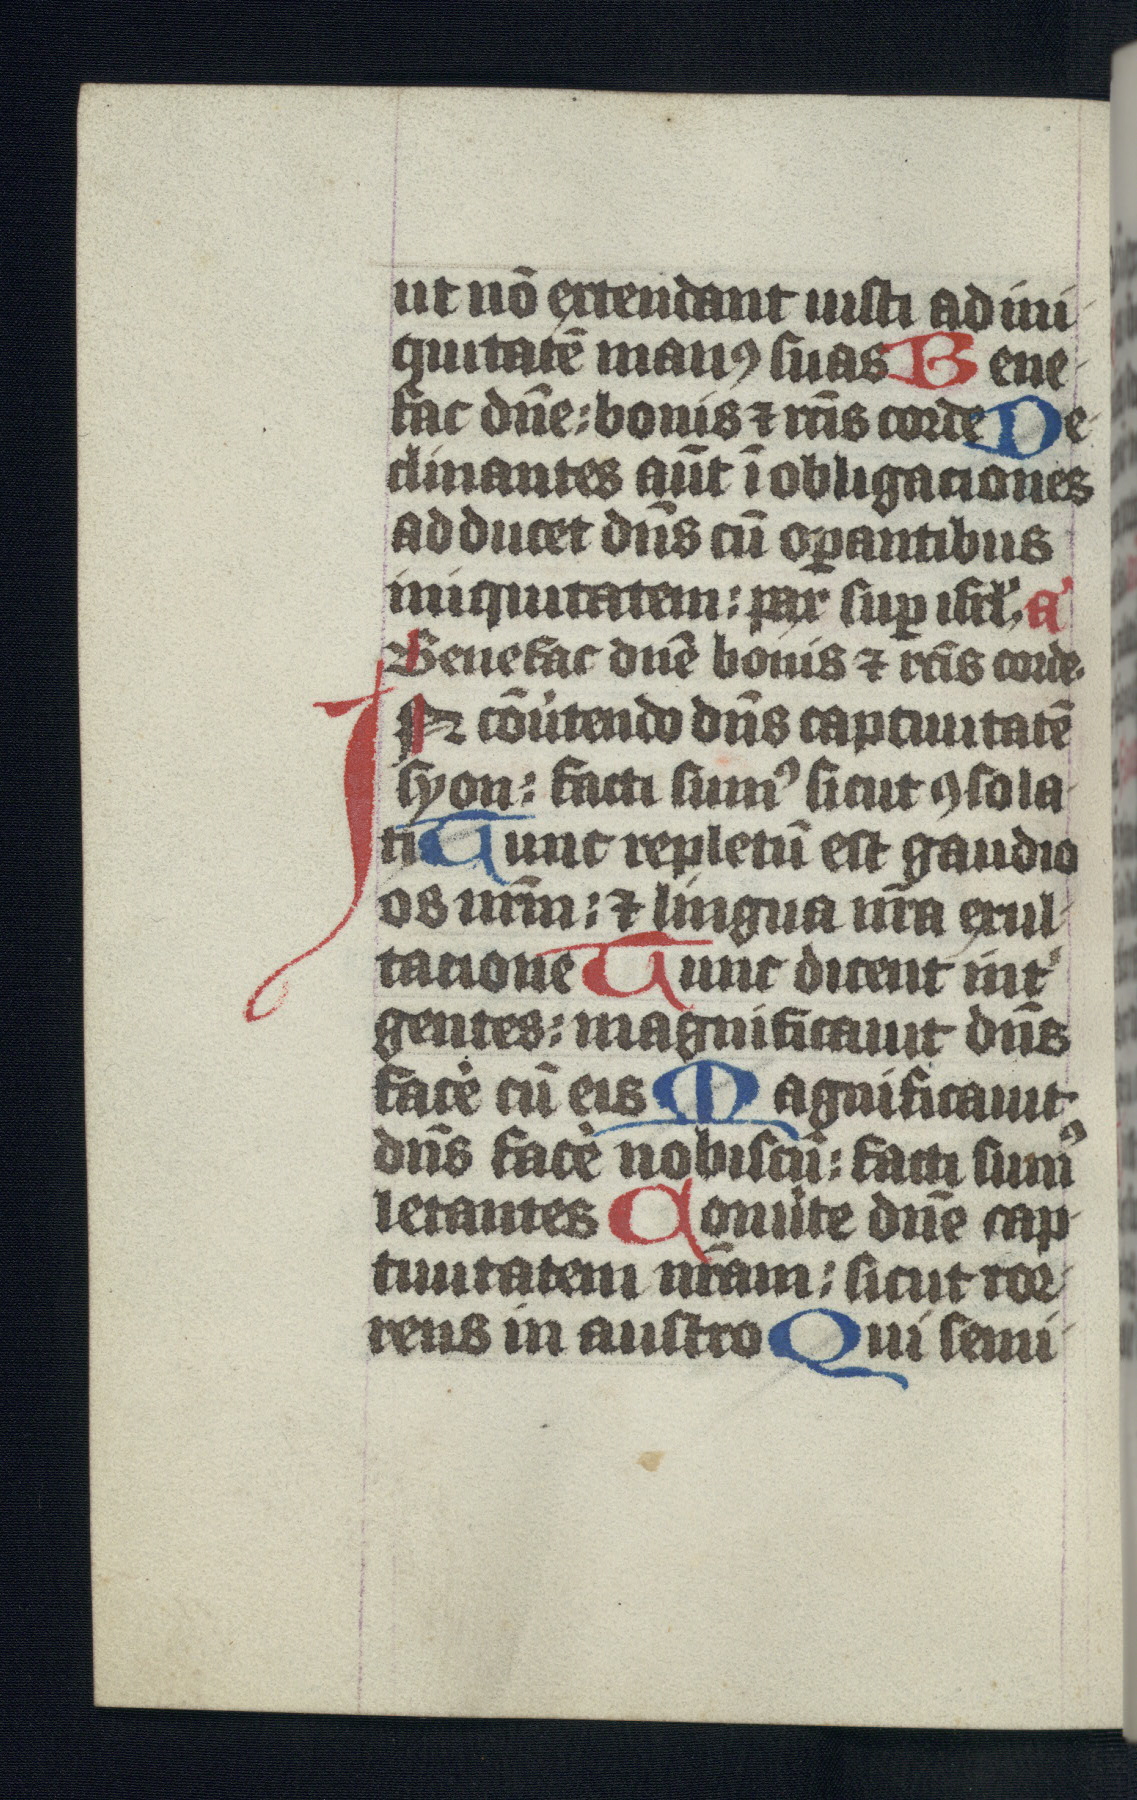 ut nō extendant iusti ad ini-
quitatē manꝯ suas Bene-
fac dn̄e: bonis ⁊ rc̄is corde De-
clinantes aūt ī obligaciones
adducet dn̄s cū oꝑantibus
iniquitatem: pax suꝑ isrl̓. a̓
Benefac dnē bonis ⁊ rc̄is corde.
IN cōu̓tendo dn̄s captiuitatē
syon: facti sumꝰ sicut ꝯsola-
ti Tunc repletū est gaudio
os nrm̄: ⁊ lingua nr̄a exul-
tacione Tunc dicent int̓
gentes: magnificauit dn̄s
face̓ cū eis Magnificauit
dn̄s face̓ nobiscū: facti sumꝰ
letantes Conu̓te dn̄e cap-
tiuitatem nr̄am: sicut tor-
rens in austro Qui semi-